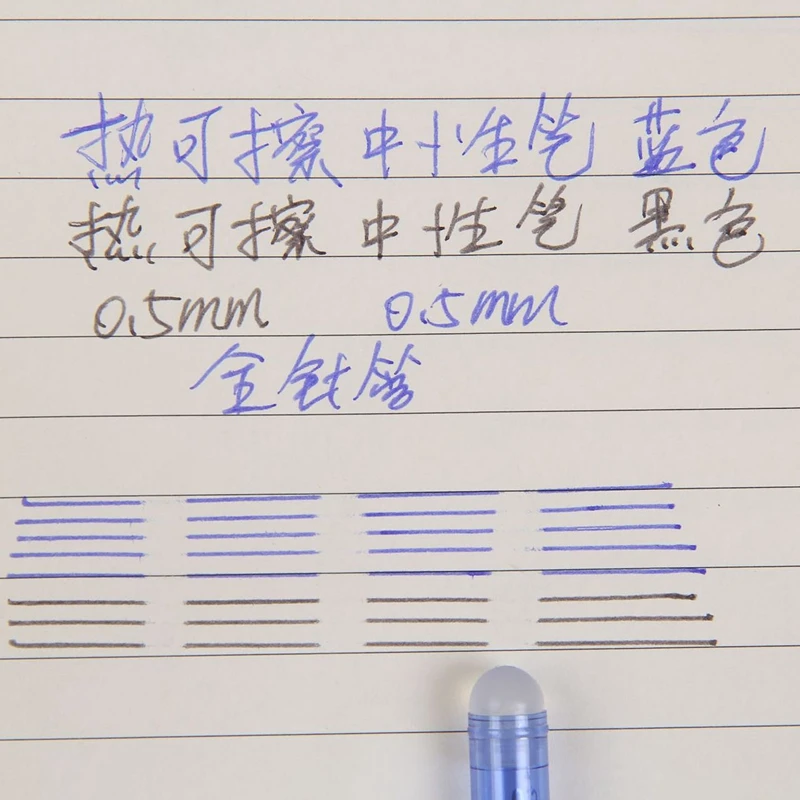 热可擦 中性笔 蓝色
热可擦 中性笔 黑色
0.5mm 0.5mm
全针管